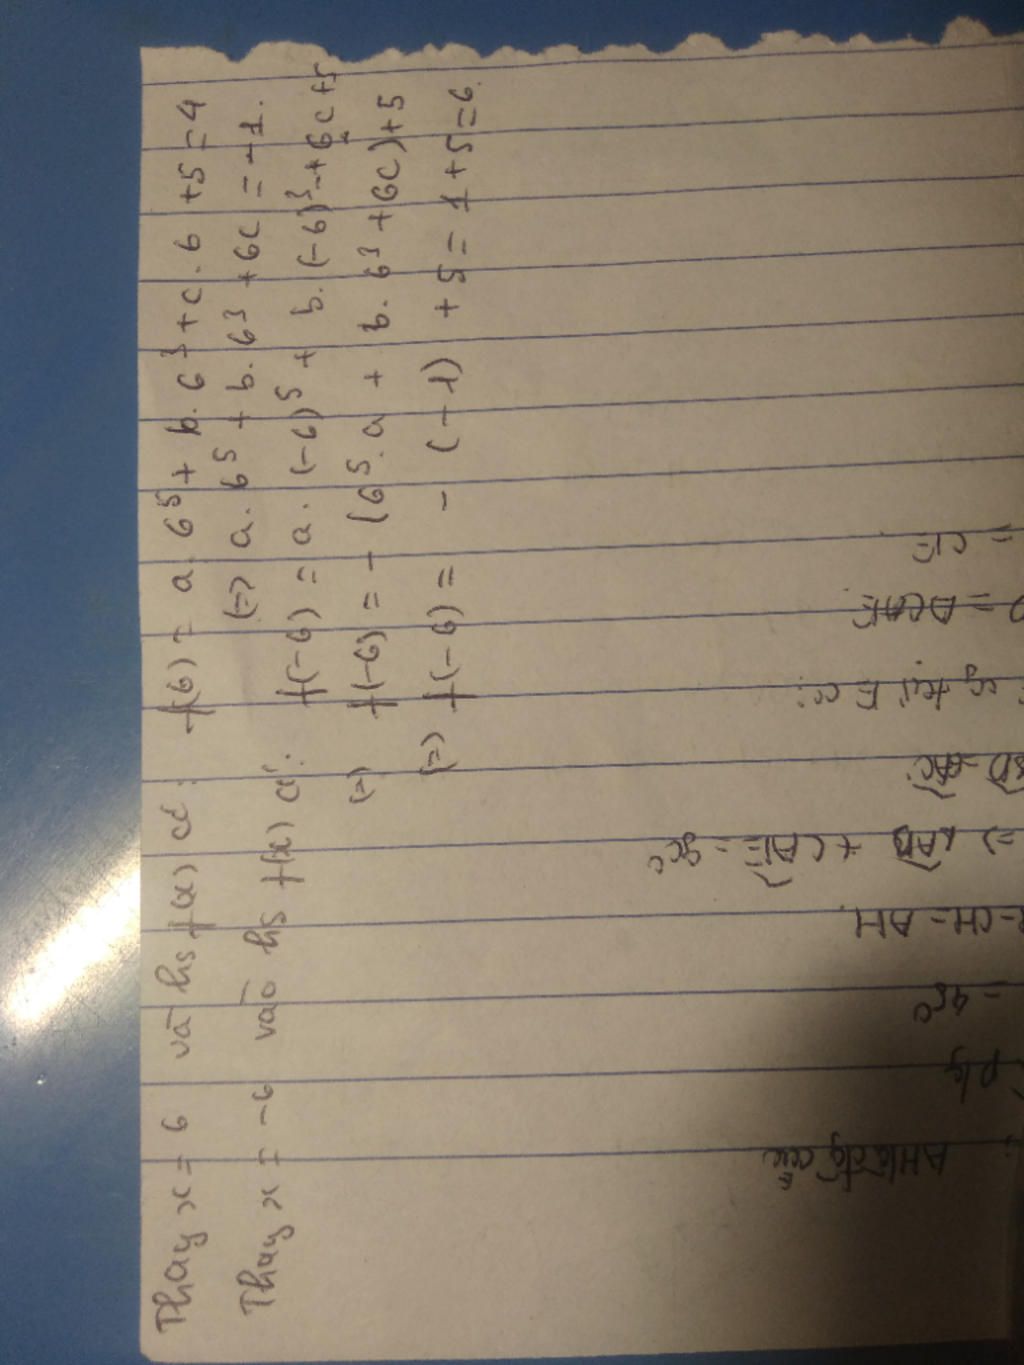 Thay x = 6 và hs f(x) có: f(6) = a.6⁵ + b.6³ + c.6 +5 = 4
(=) a.6⁵ + b.6³ +6c = -1.
Thay x = -6 vào hs f(x) có: f(-6) = a.(-6)⁵ + b.(-6)³ -+6c+5
(=) f(-6) = - (6⁵.a + b.6³ +6c)+5
(=) f(-6) = - (-1) +5 = 1+5=6.
= 45⁰
-CH=AH.
+ CAE = 90⁰
tại E có:
= CE